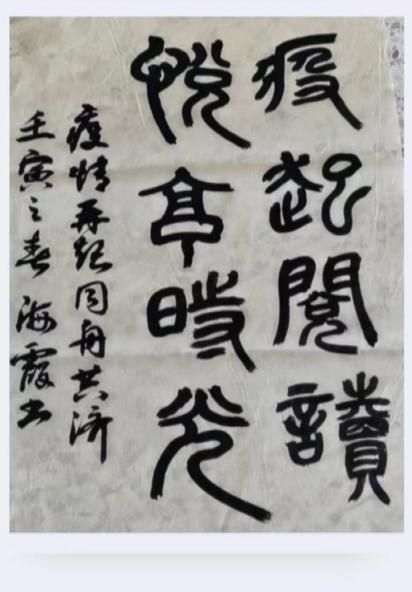 疫起閱讀
悅享時光
疫情再起同舟共济
壬寅之春 海霞书